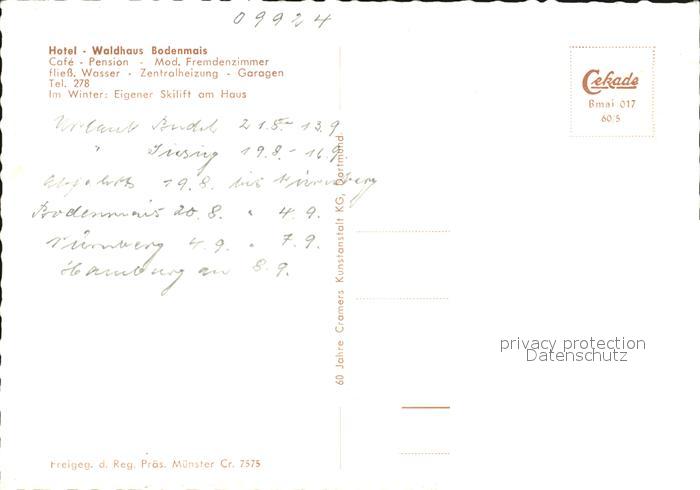 09924
Hotel - Waldhaus Bodenmais
Café - Pension - Mod. Fremdenzimmer
fließ. Wasser - Zentralheizung - Garagen
Tel. 278
Im Winter: Eigener Skilift am Haus
Urlaub 13.9.
" 19.8. - 16.9.
19.8. bis Nürnberg
Bodenmais 20.8. " 4.9.
Nürnberg 4.9. " 7.9.
Hamburg an 8.9.
60 Jahre Cramers Kunstanstalt KG, Dortmund
Cekade
Bmai 017
60/5
privacy protection
Datenschutz
Freigeg. d. Reg. Präs. Münster Cr. 7575